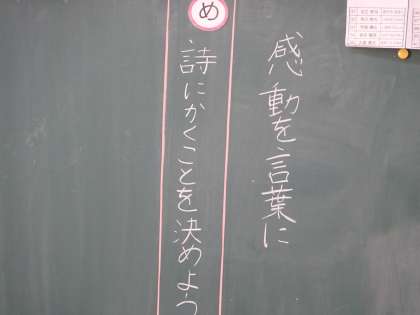 感動を言葉に
め
詩にかくことを決めよう